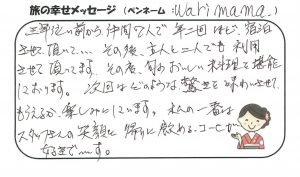 旅の幸せメッセージ (ペンネーム warimama.)
三年位い前から仲間7人で年二回ほど、宿泊
させて頂いて… その後、主人と二人でも利用
させて頂いてます。その度、旬のおいしい料理を堪能
しております。次回はどのような驚きを味わいさせて
もらえるか楽しみにしています。私の一番は
スタッフさんの笑顔と帰りに飲めるコーヒーが
好きで…す。